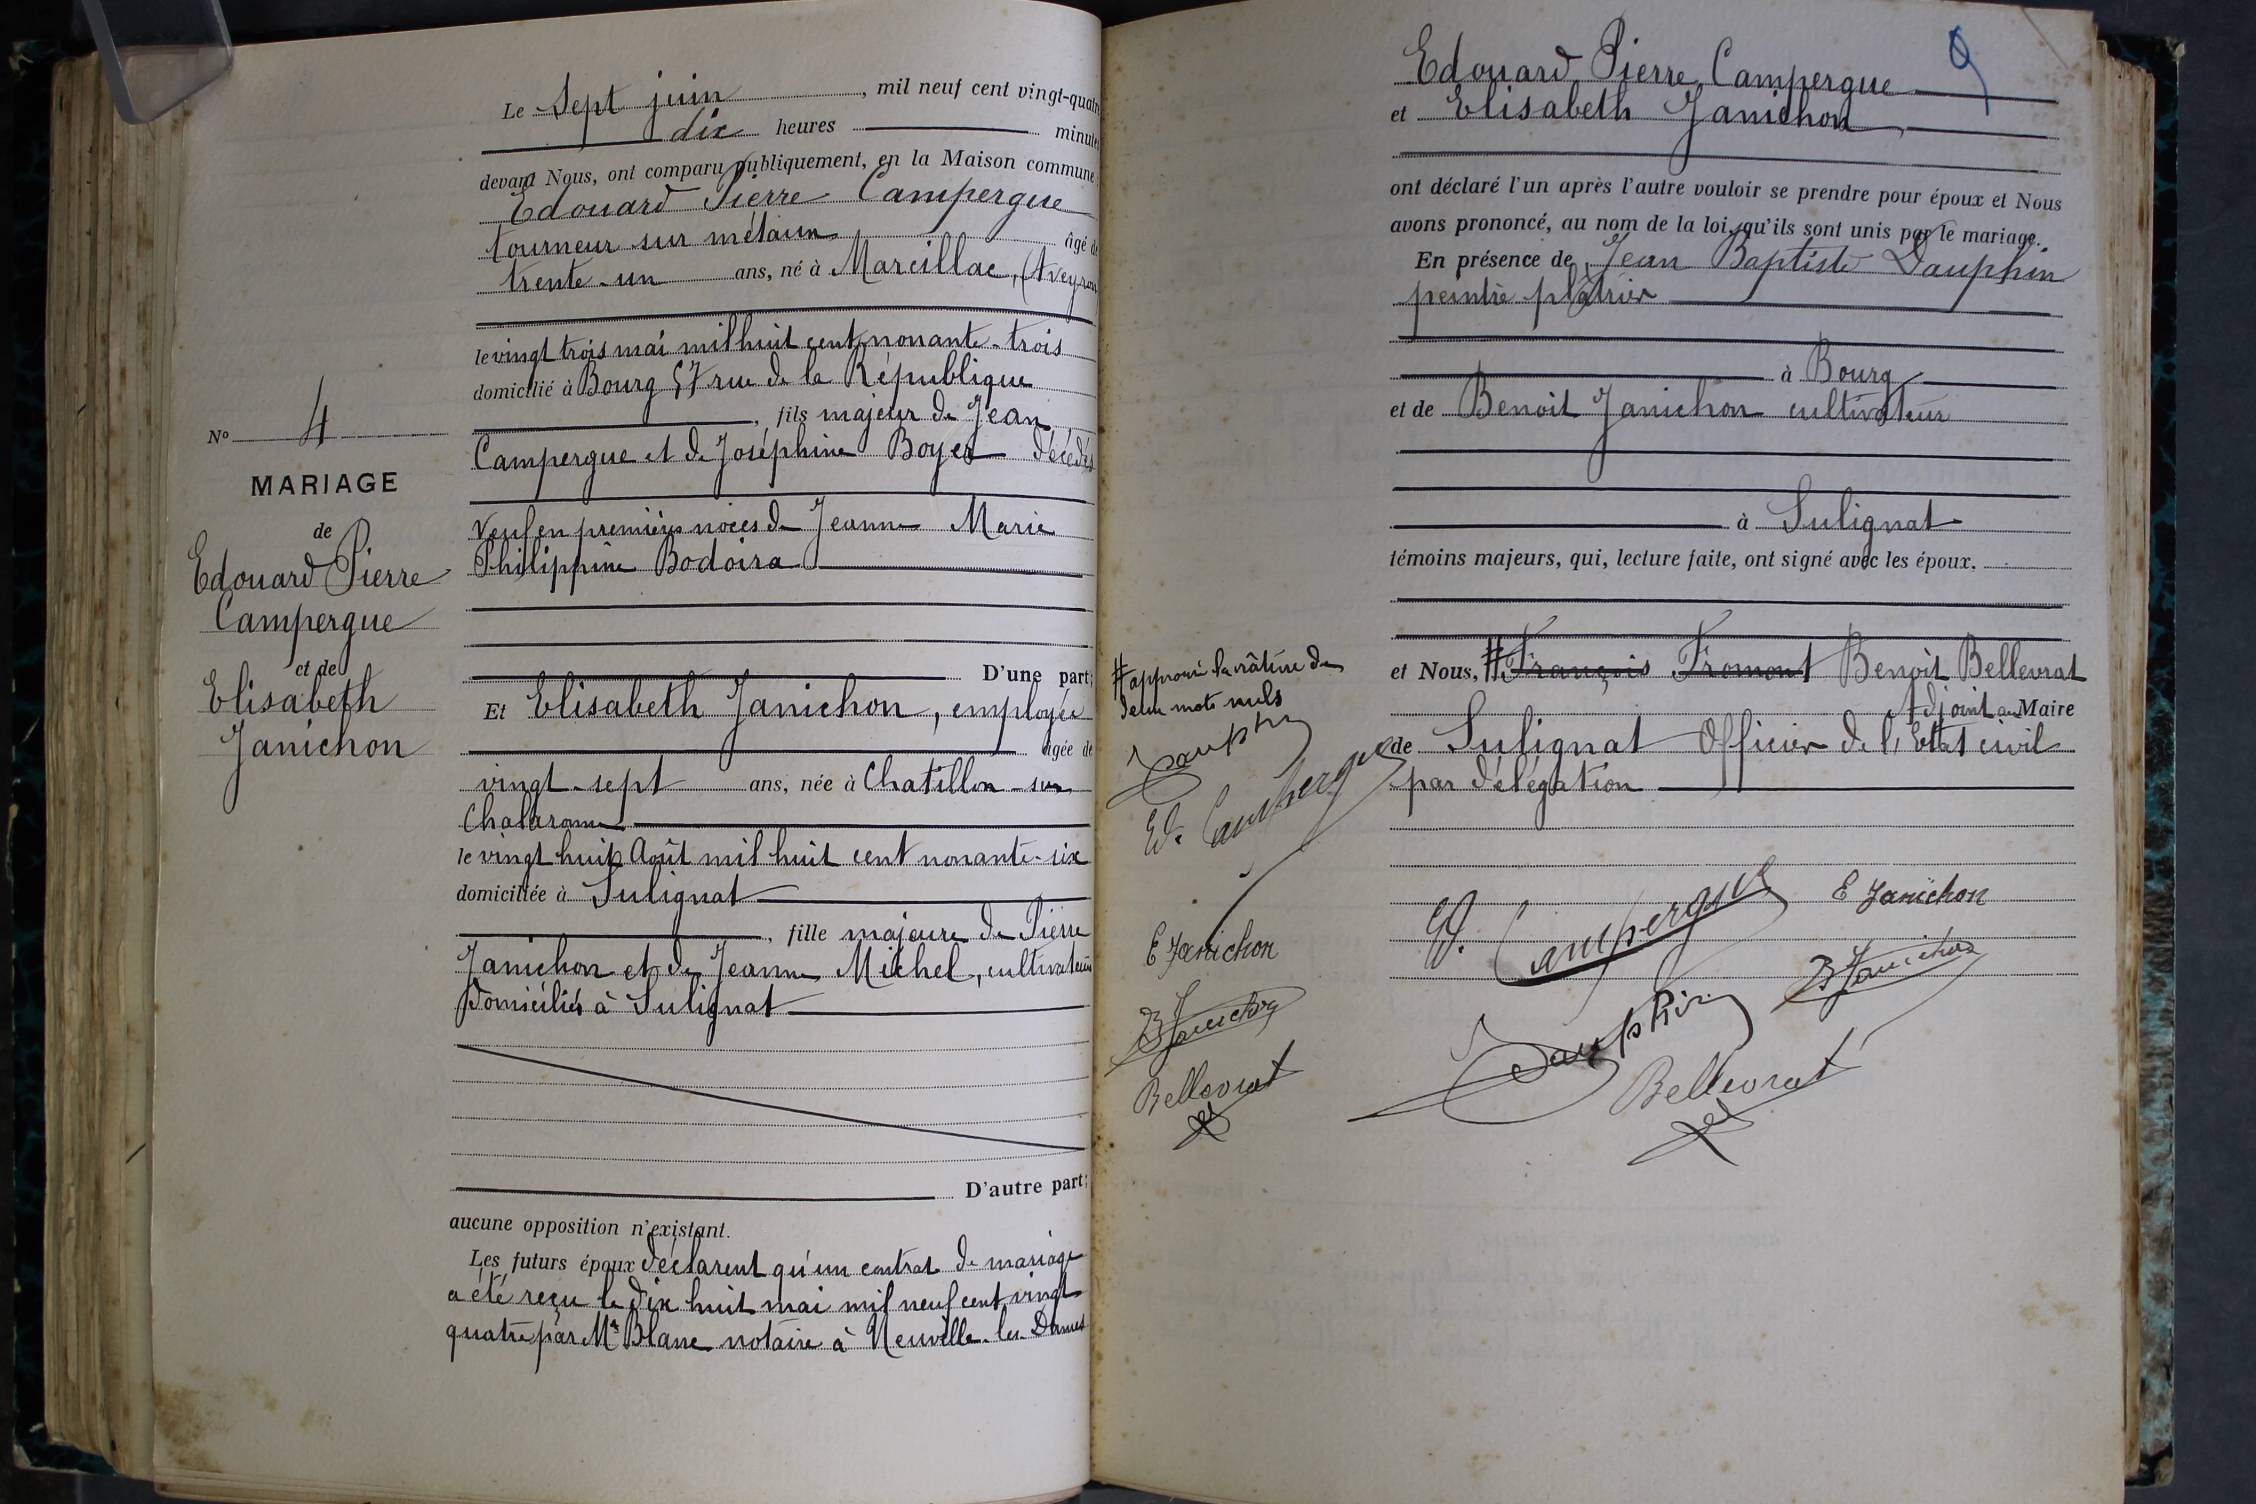 Le Sept juin, mil neuf cent vingt-quatre
dix heures minutes
devant Nous, ont comparu publiquement, en la Maison commune :
Edouard Pierre Campergue
tourneur sur métaux âgé de
trente-un ans, né à Marcillac, (Aveyron
le vingt trois mai mil huit cent nonante-trois
domicilié à Bourg 57 rue de la République
, fils majeur de Jean
Campergue et de Joséphine Boyer décédés
Veuf en premières noces de Jeanne Marie
Philippine Bodoira
D'une part;
Et Elisabeth Janichon, employée
âgée de
vingt-sept ans, née à Chatillon-sur
Chalaronne
le vingt huit Août mil huit cent nonante-six
domiciliée à Sulignat
, fille majeure de Pierre
Janichon et de Jeanne Michel, cultivateurs
domiciliés à Sulignat
D'autre part;
aucune opposition n'existant.
Les futurs époux déclarent qu'un contrat de mariage
a été reçu le dix huit mai mil neuf cent vingt
quatre par Me Blanc notaire à Neuville-les-Dames
No 4
MARIAGE
de
Edouard Pierre
Campergue
et de
Elisabeth
Janichon
9
Edouard Pierre Campergue
et Elisabeth Janichon
ont déclaré l'un après l'autre vouloir se prendre pour époux et Nous
avons prononcé, au nom de la loi, qu'ils sont unis par le mariage.
En présence de Jean Baptiste Dauphin
peintre plâtrier
à Bourg
et de Benoit Janichon cultivateur
à Sulignat
témoins majeurs, qui, lecture faite, ont signé avec les époux.
et Nous, # François Fromont Benoit Bellevrat
Adjoint au Maire
de Sulignat Officier de l'Etat civil
par délégation
# approuvé la râture de
deux mots nuls
Dauphin
Ed. Campergue
E Janichon
B Janichon
Bellevrat
Ed. Campergue
E Janichon
B Janichon
Dauphin
Bellevrat